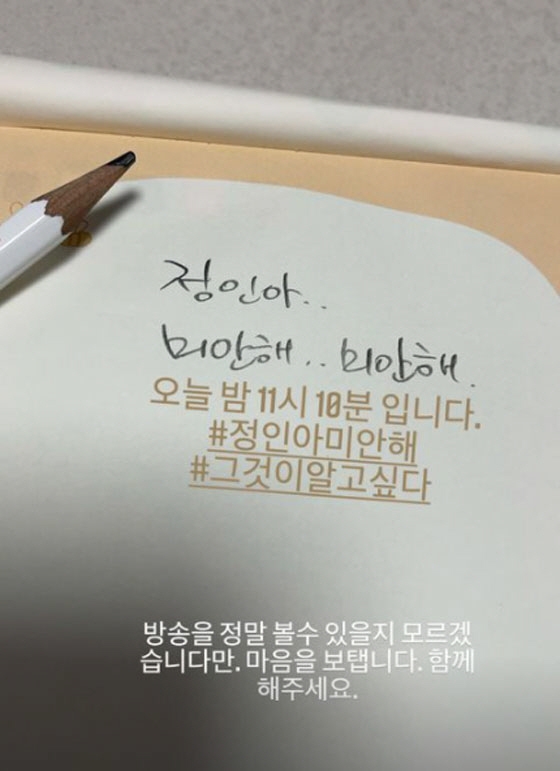 정인아..
미안해.. 미안해.
오늘 밤 11시 10분 입니다.
#정인아미안해
#그것이알고싶다
방송을 정말 볼수 있을지 모르겠
습니다만. 마음을 보탭니다. 함께
해주세요.